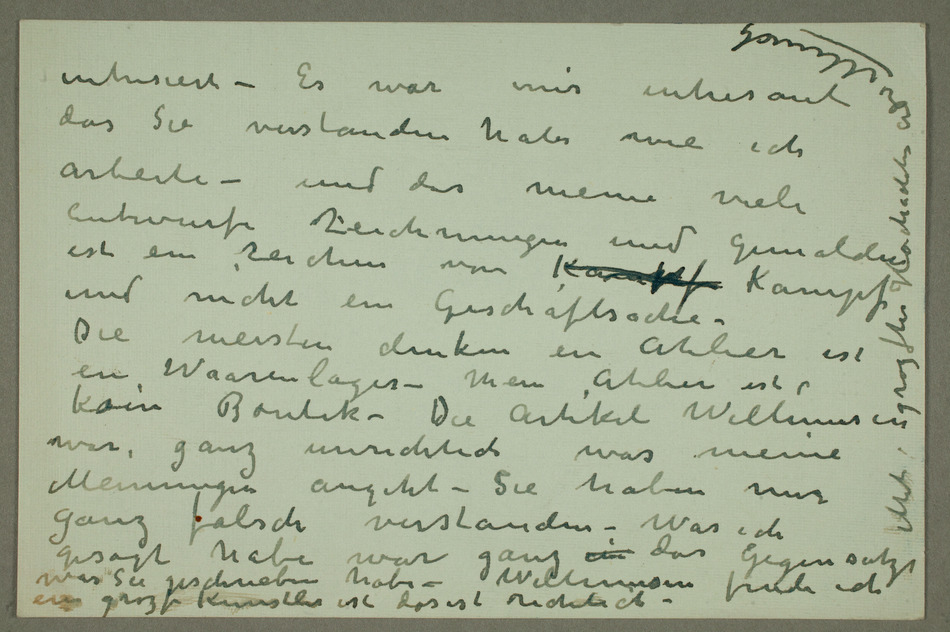 intresiert – Es war mir intresant
das Sie verstanden habe wie ich
arbeite – und das meine viele
Entwürfe Zeichnungen und Gemälden
ist ein zeichen von Kampf Kampf
und nicht ein Geschäftsache –
Die meisten denken ein Atelier ist
ein Waarenlager – Mein Atelier ist
kein Boutik – Die Artikel Willumsen
war, ganz unrichtich was meine
Meinungen angeht – Sie haben mir
ganz falsch verstanden – Was ich
gesagt habe war ganz ein das Gegensatz
was Sie geschrieben habe – Willumsen finde ich
ein grozse Künstler ist das ist richtich –
Mit grozster Hochachtung